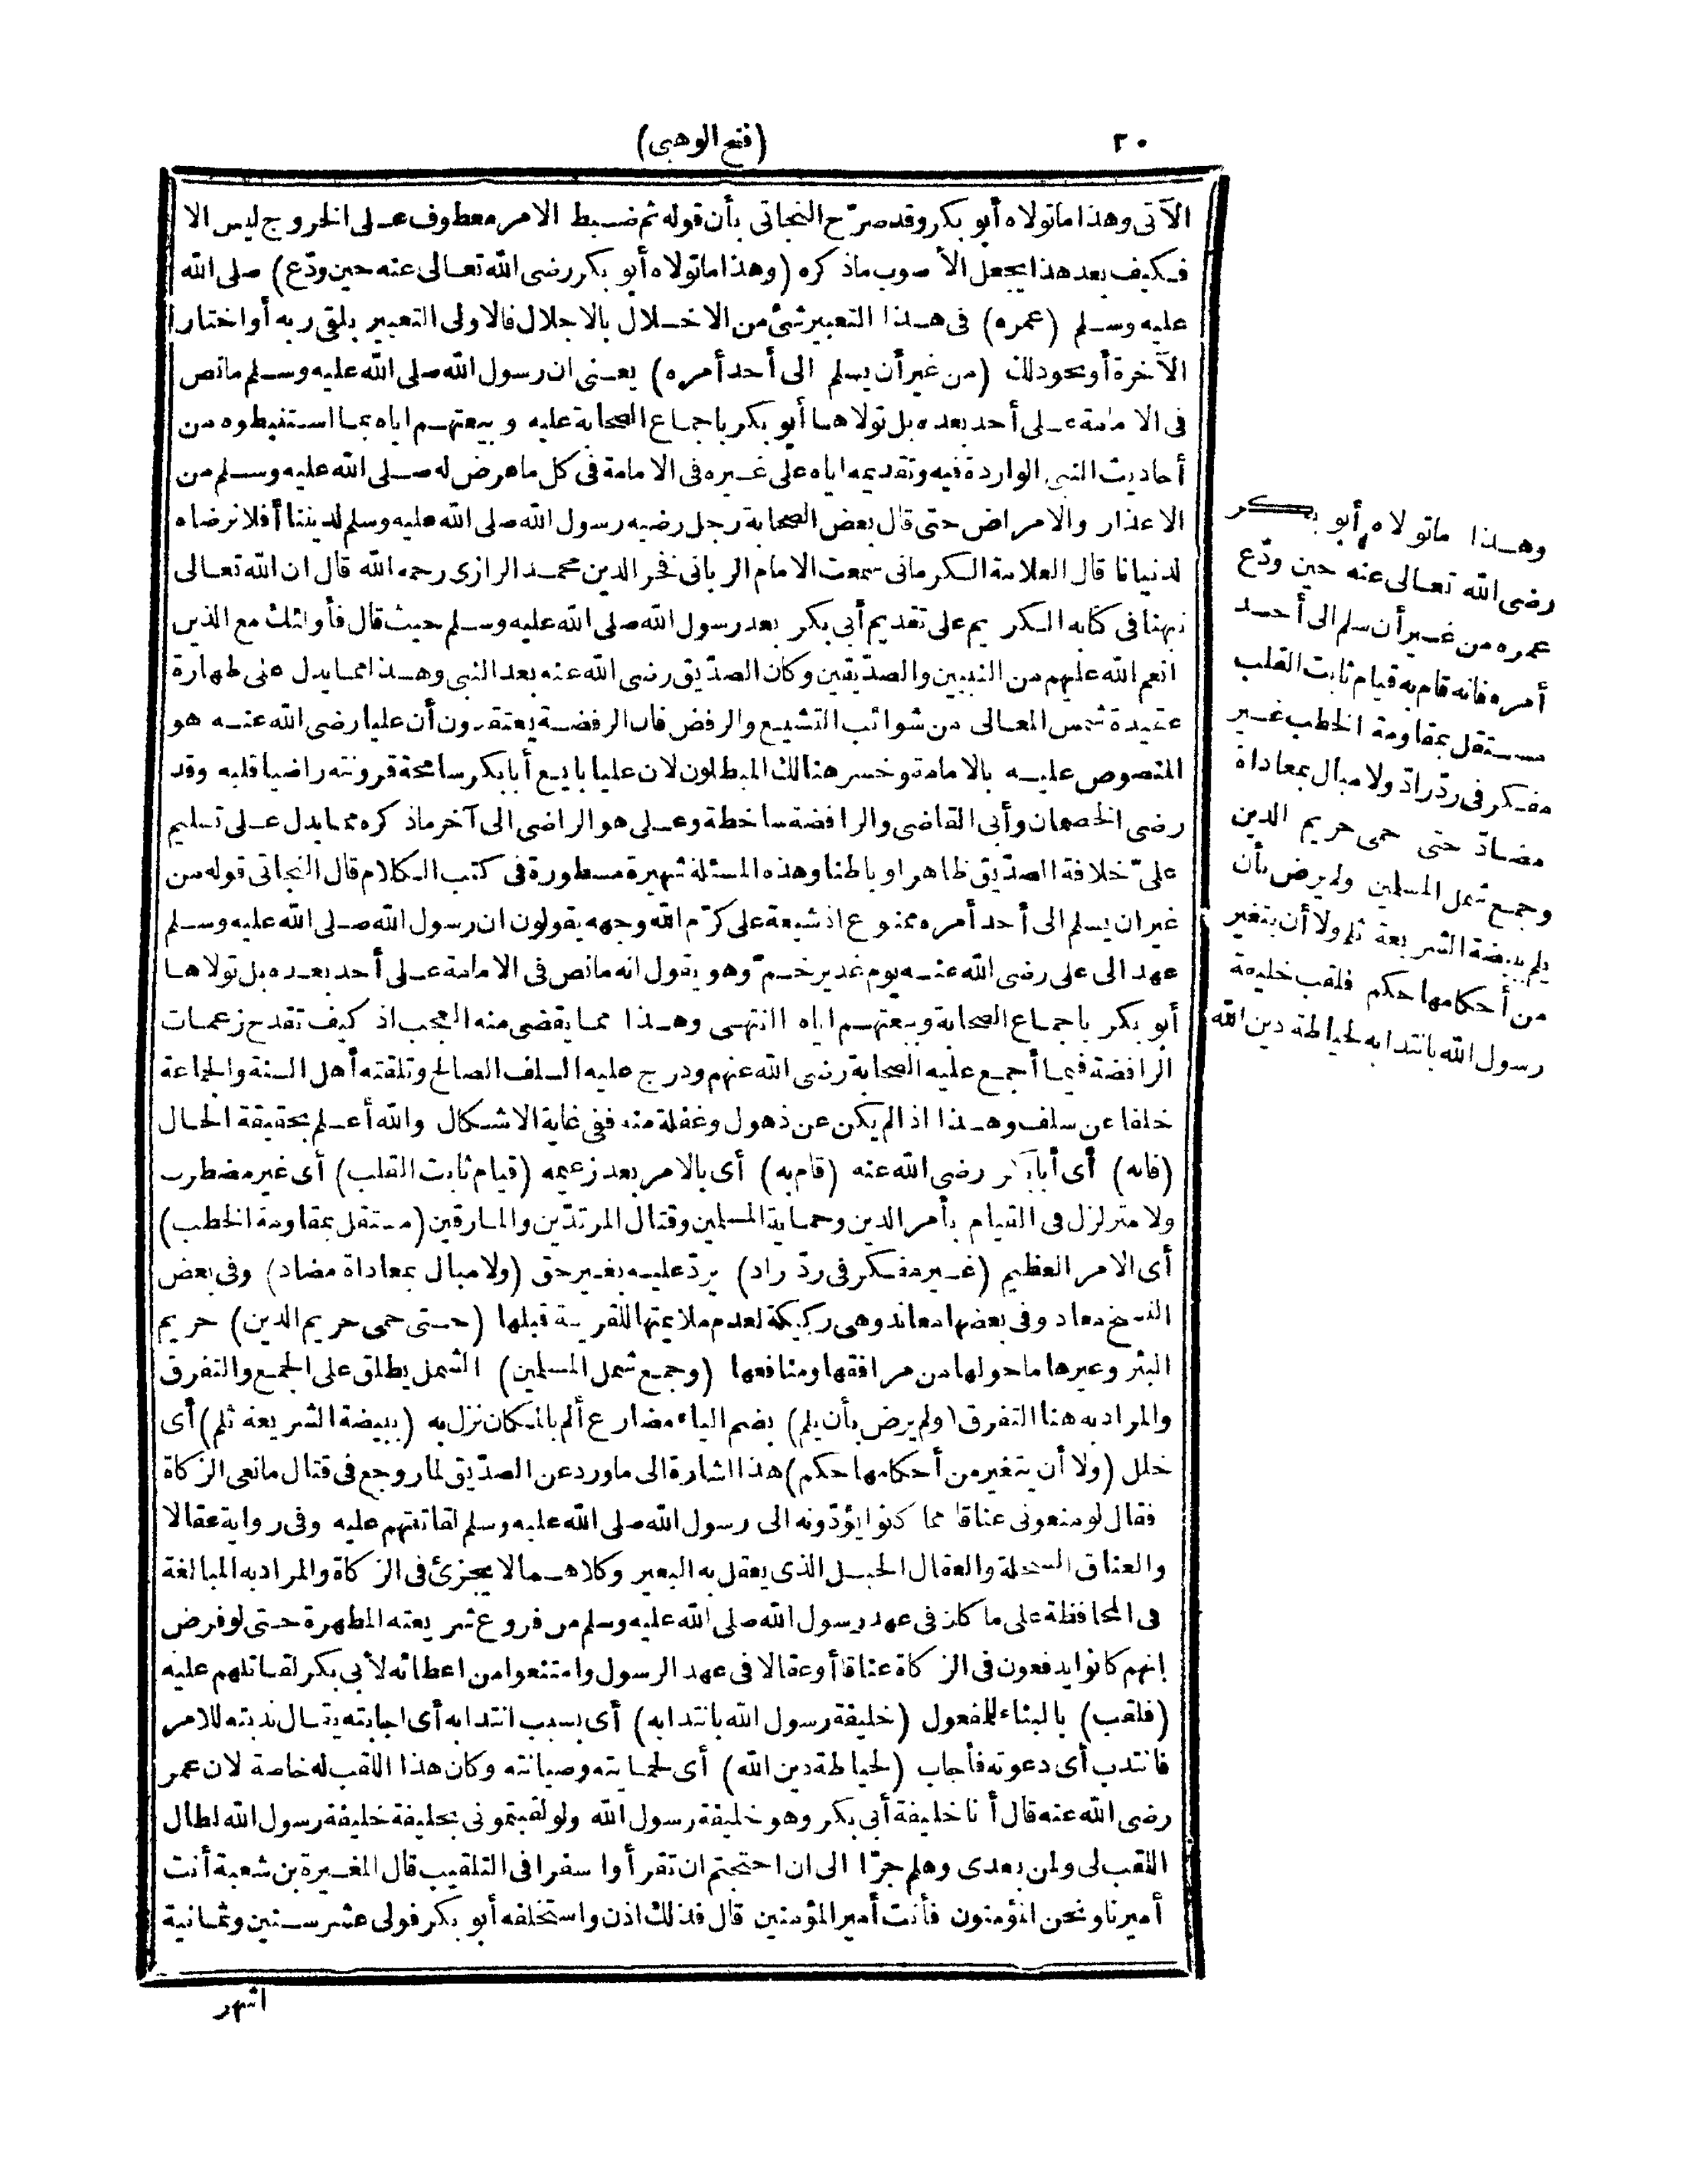 ٣٠
(فتح الوهبى)
الآتى وهذا ما تولاه أبو بكر وقد صرّح النجاتى بأن قوله ثم ضبط الامر معطوف على الخروج ليس الا
فكيف بعد هذا يجعل الأصوب ماذكره (وهذا ما تولاه أبو بكر رضى الله تعالى عنه حين ودّع) صلى الله
عليه وسلم (عمره) فى هذا التعبير شئ من الاخلال بالاجلال فالاولى التعبير بلقى ربه أو اختار
الآخرة أو نحو ذلك (من غير أن يسلم الى أحد أمره) يعنى ان رسول الله صلى الله عليه وسلم ما نص
فى الامامة على أحد بعده بل تولاها أبو بكر باجماع الصحابة عليه وبيعتهم اياه بما استنبطوه من
أحاديث النبى الواردة فيه وتقديمه اياه على غيره فى الامامة فى كل ما عرض له صلى الله عليه وسلم من
الاعذار والامراض حتى قال بعض الصحابة رجل رضيه رسول الله صلى الله عليه وسلم لديننا أفلا نرضاه
لدنيانا قال العلامة الكرمانى سمعت الامام الربانى فخر الدين محمد الرازى رحمه الله قال ان الله تعالى
نبهنا فى كتابه الكريم على تقديم أبى بكر بعد رسول الله صلى الله عليه وسلم حيث قال فأولئك مع الذين
انعم الله عليهم من النبيين والصدّيقين وكان الصدّيق رضى الله عنه بعد النبى وهذا مما يدل على طهارة
عقيدة شمس المعالى من شوائب التشيع والرفض فان الرفضة يعتقدون أن عليا رضى الله عنه هو
المنصوص عليه بالامامة وخسر هنالك المبطلون لان عليا بايع أبا بكر سامحة قرونته راضيا قلبه وقد
رضى الخصمان وأبى القاضى والرافضة ساخطة وعلى هو الراضى الى آخر ماذكره مما يدل على تسليم
علىّ خلافة الصدّيق ظاهرا وباطنا وهذه المسئلة شهيرة مسطورة فى كتب الكلام قال النجاتى قوله من
غير ان يسلم الى أحد أمره ممنوع اذ شيعة على كرّم الله وجهه يقولون ان رسول الله صلى الله عليه وسلم
عهد الى على رضى الله عنه يوم غدير خمّ وهو يقول انه ما نص فى الامامة على أحد بعده بل تولاها
أبو بكر باجماع الصحابة وبيعتهم اياه انتهى وهذا مما يقضى منه العجب اذ كيف تقدح زعمات
الرافضة فيما أجمع عليه الصحابة رضى الله عنهم ودرج عليه السلف الصالح وتلقته أهل السنة والجماعة
خلفا عن سلف وهذا اذا لم يكن عن ذهول وغفلة منه ففى غاية الاشكال والله أعلم بحقيقة الحال
(فانه) أى أبا بكر رضى الله عنه (قام به) أى بالامر بعد زعيمه (قيام ثابت القلب) أى غير مضطرب
ولا متزلزل فى القيام بأمر الدين وحماية المسلمين وقتال المرتدّين والمارقين (مستقل بمقاومة الخطب)
أى الامر العظيم (غير مفكر فى ردّ راد) يردّ عليه بغير حق (ولا مبال بمعاداة مضاد) وفى بعض
النسخ معاد وفى بعضها معاند وهى ركيكة لعدم ملايمتها للقرينة قبلها (حتى حمى حريم الدين) حريم
البئر وغيرها ما حولها من مرافقها ومنافعها (وجمع شمل المسلمين) الشمل يطلق على الجمع والتفرق
والمراد به هنا التفرق (ولم يرض بأن يلم) بضم الياء مضارع ألم بالمكان نزل به (ببيضة الشريعة ثلم) أى
خلل (ولا أن يتغير من أحكامها حكم) هذا اشارة الى ما ورد عن الصدّيق لما روجع فى قتال مانعى الزكاة
فقال لو منعونى عناقا مما كانوا يؤدّونه الى رسول الله صلى الله عليه وسلم لقاتلتهم عليه وفى رواية عقالا
والعناق السخلة والعقال الحبل الذى يعقل به البعير وكلاهما لا يجزئ فى الزكاة والمراد به المبالغة
فى المحافظة على ما كان فى عهد رسول الله صلى الله عليه وسلم من فروع شريعته المطهرة حتى لو فرض
انهم كانوا يدفعون فى الزكاة عناقا أو عقالا فى عهد الرسول وامتنعوا من اعطائه لأبى بكر لقاتلهم عليه
(فلقب) بالبناء للمفعول (خليفة رسول الله بانتدابه) أى بسبب انتدابه أى اجابته يقال ندبته للامر
فانتدب أى دعوته فأجاب (لحياطة دين الله) أى لحمايته وصيانته وكان هذا اللقب له خاصة لان عمر
رضى الله عنه قال أنا خليفة أبى بكر وهو خليفة رسول الله ولو لقبتمونى بخليفة خليفة رسول الله لطال
اللقب لى ولمن بعدى وهلم جرّا الى ان احتجتم ان تقرأوا سفرا فى التلقيب قال المغيرة بن شعبة أنت
أميرنا ونحن المؤمنون فأنت أمير المؤمنين قال فذلك اذن واستخلفه أبو بكر فولى عشر سنين وثمانية
اشهر
وهذا ما تولاه أبو بكر
رضى الله تعالى عنه حين ودّع
عمره من غير أن سلم الى أحد
أمره فانه قام به قيام ثابت القلب
مستقل بمقاومة الخطب غير
مفكر فى ردّ رادّ ولا مبال بمعاداة
مضادّ حتى حمى حريم الدين
وجمع شمل المسلمين ولم يرض بأن
يلم ببيضة الشريعة ثلم ولا أن يتغير
من أحكامها حكم فلقب خليفة
رسول الله بانتدابه لحياطة دين الله